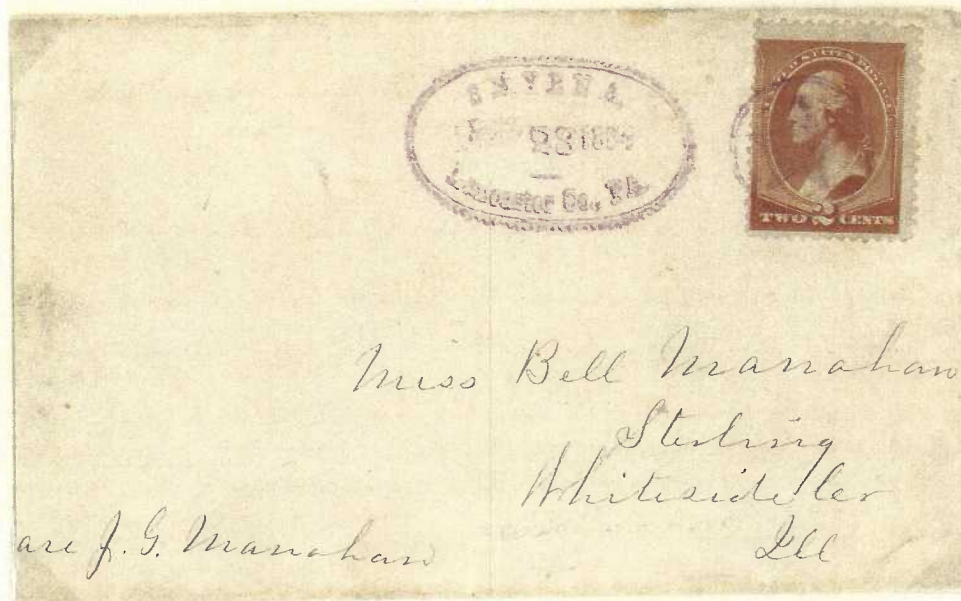 SMYRNA
28 188
Lancaster Co., PA.
UNITED STATES POSTAGE
TWO 2 CENTS
Miss Bell Manahan
Sterling
Whiteside Co
Ill
are J. G. Manahan